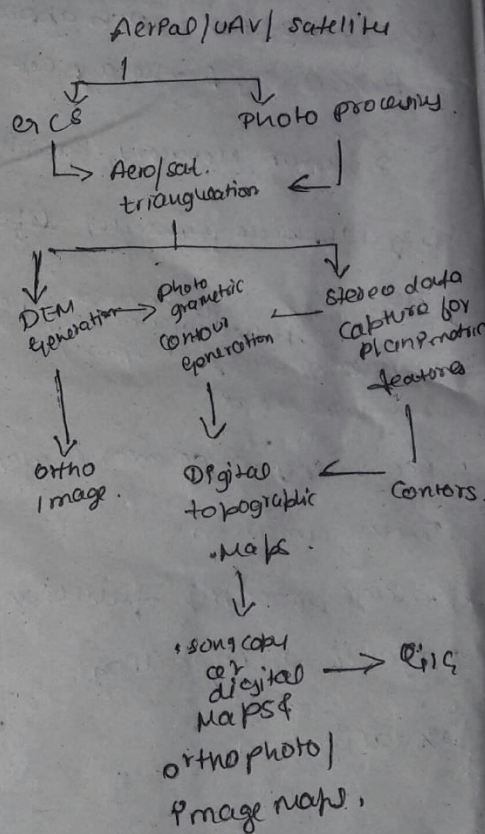 AerPal/UAV/ satelite
GCS
Photo processing.
Aero/sat.
triangulation
DEM
Generation
photo
grametric
contour
Generation
stereo data
capture for
planpmatric
features
ortho
Image.
Digital
topographic
Maps.
Contors.
copy
or
digital
Maps &
orthophoto/
Pmage maps.